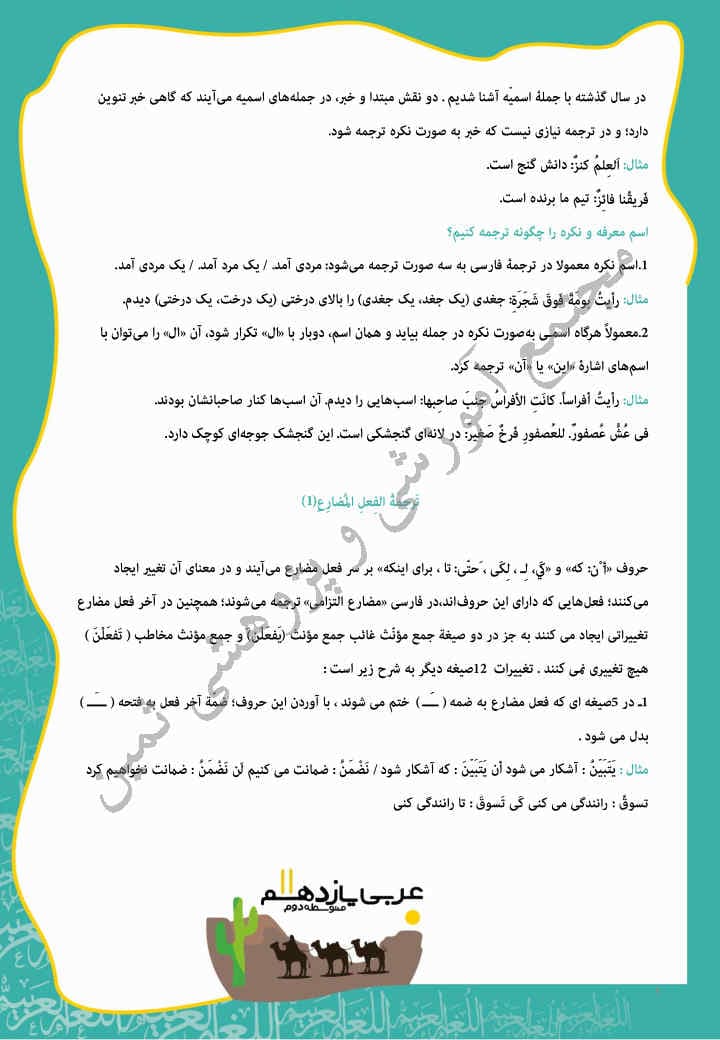 در سال گذشته با جملهٔ اسمیّه آشنا شدیم . دو نقش مبتدا و خبر، در جمله‌های اسمیه می‌آیند که گاهی خبر تنوین
دارد؛ و در ترجمه نیازی نیست که خبر به صورت نکره ترجمه شود.
مثال: اَلعِلمُ کنزٌ: دانش گنج است.
فَریقُنا فائِزٌ: تیم ما برنده است.
اسم معرفه و نکره را چگونه ترجمه کنیم؟
1.اسم نکره معمولا در ترجمهٔ فارسی به سه صورت ترجمه می‌شود: مردی آمد. / یک مرد آمد. / یک مردی آمد.
مثال: رأیتُ بومَةً فوقَ شَجَرَةٍ: جغدی (یک جغد، یک جغدی) را بالای درختی (یک درخت، یک درختی) دیدم.
2.معمولاً هرگاه اسمی به‌صورت نکره در جمله بیاید و همان اسم، دوبار با «ال» تکرار شود، آن «ال» را می‌توان با
اسم‌های اشارهٔ «این» یا «آن» ترجمه کرد.
مثال: رأیتُ أفراساً. کانَتِ الأفراسُ جنبَ صاحِبها: اسب‌هایی را دیدم. آن اسب‌ها کنار صاحبانشان بودند.
فی عُشِّ عُصفورٌ. للعُصفورِ فرخٌ صَغیر: در لانه‌ای گنجشکی است. این گنجشک جوجه‌ای کوچک دارد.
تَرجمةُ الفِعلِ المُضارِعِ(1)
حروف «أَنْ: که» و «کَي، لِـ ، لِکَی ، حتّی: تا ، برای اینکه» بر سر فعل مضارع می‌آیند و در معنای آن تغییر ایجاد
می‌کنند؛ فعل‌هایی که دارای این حروف‌اند،در فارسی «مضارع التزامی» ترجمه می‌شوند؛ همچنین در آخر فعل مضارع
تغییراتی ایجاد می کنند به جز در دو صیغهٔ جمع مؤنّث غائب جمع مؤنث (یَفعَلْنَ) و جمع مؤنث مخاطب ( تَفعَلْنَ )
هیچ تغییری نمی کنند . تغییرات 12صیغه دیگر به شرح زیر است :
1ـ در 5صیغه ای که فعل مضارع به ضمه ( ـُـ ) ختم می شوند ، با آوردن این حروف؛ ضمّة آخر فعل به فتحه ( ـَـ )
بدل می شود .
مثال : یَتَبَیّنُ : آشکار می شود أن یَتَبَیّنَ : که آشکار شود / نَضْمَنُ : ضمانت می کنیم لَن نَضْمَنَ : ضمانت نخواهیم کرد
تسوقُ : رانندگی می کنی کَی تَسوقَ : تا رانندگی کنی
مجتمع آموزشی و پژوهشی ثمین
عربی یازدهم
متوسطه دوم
اللغة العربیة